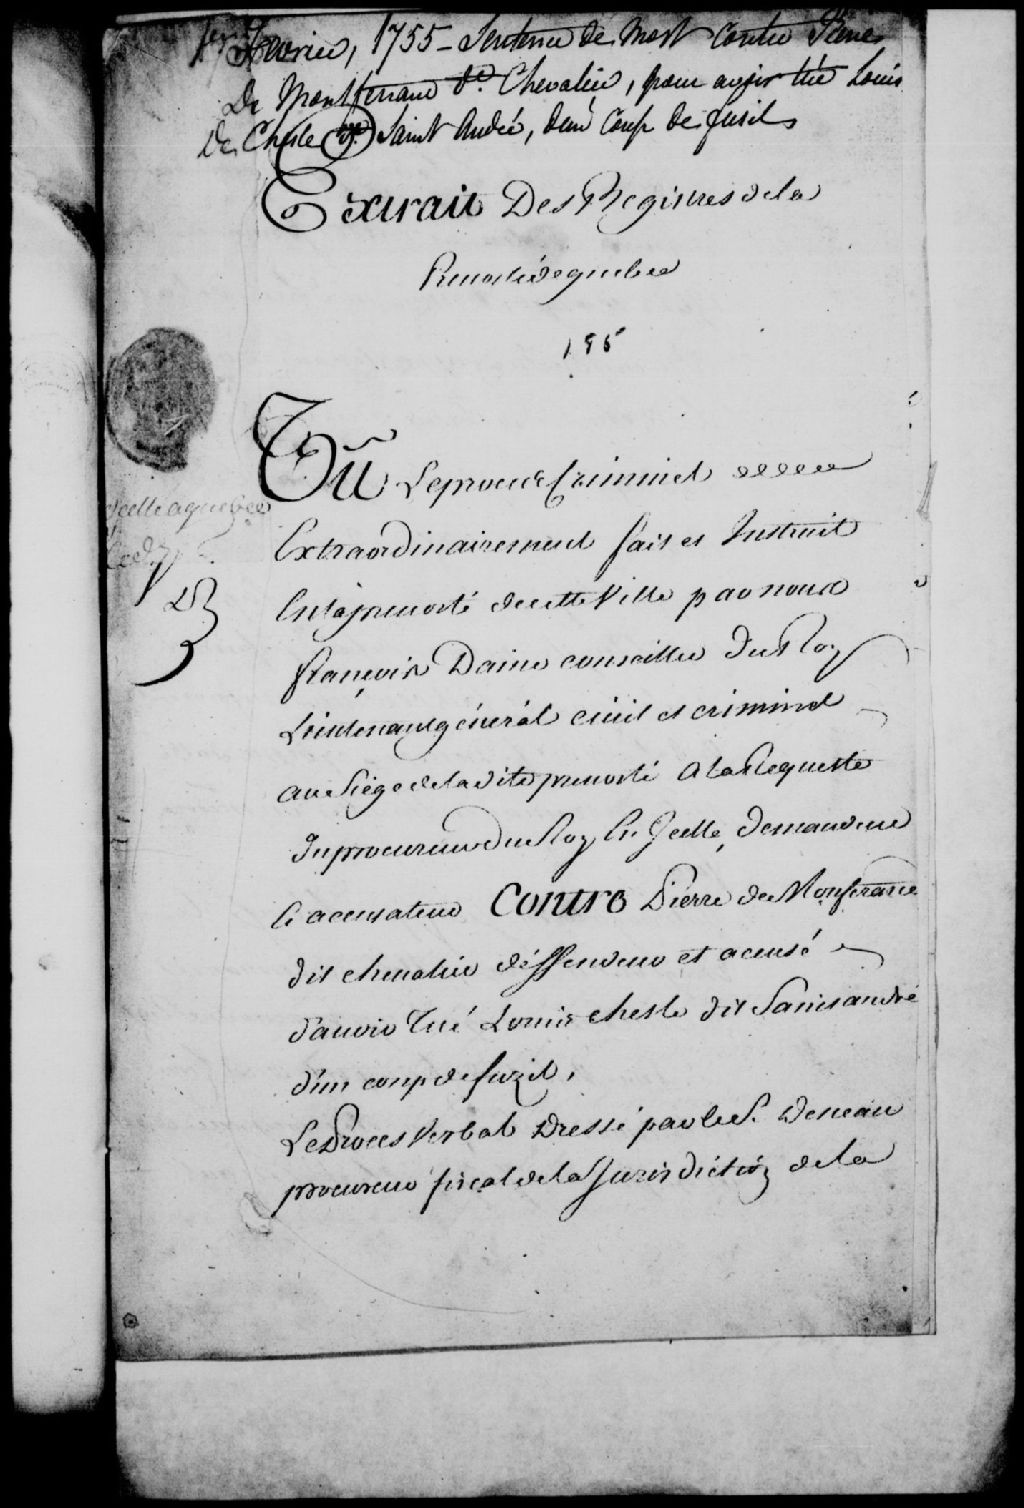 fevrier, 1755 - Sentence de Mort contre Pierre
De Montferrand dt. Chevalier, pour avoir tué Louis
De Chesle dt. Saint André, d'un Coup de fusil
Extrait Des Registres dela
Prevosté de quebec
Vû Le proces Criminel
Extraordinairement fait et Instruit
En la prevosté de cette Ville par nous
françois Daine conseiller Du Roy
Lieutenant général civil et criminel
au siége de la dite prevosté a la Requeste
du procureur du Roy En Icelle, demandeur
Et accusateur Contre Pierre de Monferrand
dit chevalier déffendeur et accusé
d'avoir Tué Louis chesle dit Saint andré
d'un coup de fuzil,
Le Proces Verbal Dressé par le S. Deneau
procureur fiscal de la Jurisdiction de la
scellé a quebec